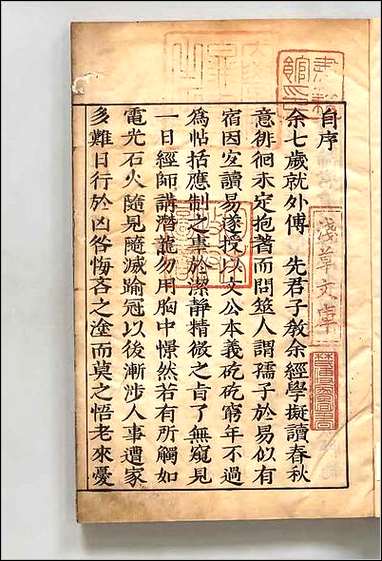 自序
余七歲就外傅　先君子敎余經學擬讀春秋
意徘徊未定抱蓍而問筮人謂孺子於易似有
宿因宜讀易遂授以文公本義矻矻窮年不過
爲帖括應制之事於潔靜精微之旨了無窺見
一日經師講潛龍勿用胸中憬然若有所觸如
電光石火隨見隨滅踰冠以後漸涉人事遭家
多難日行於凶咎悔吝之塗而莫之悟老來憂
淺草文庫
書籍館印